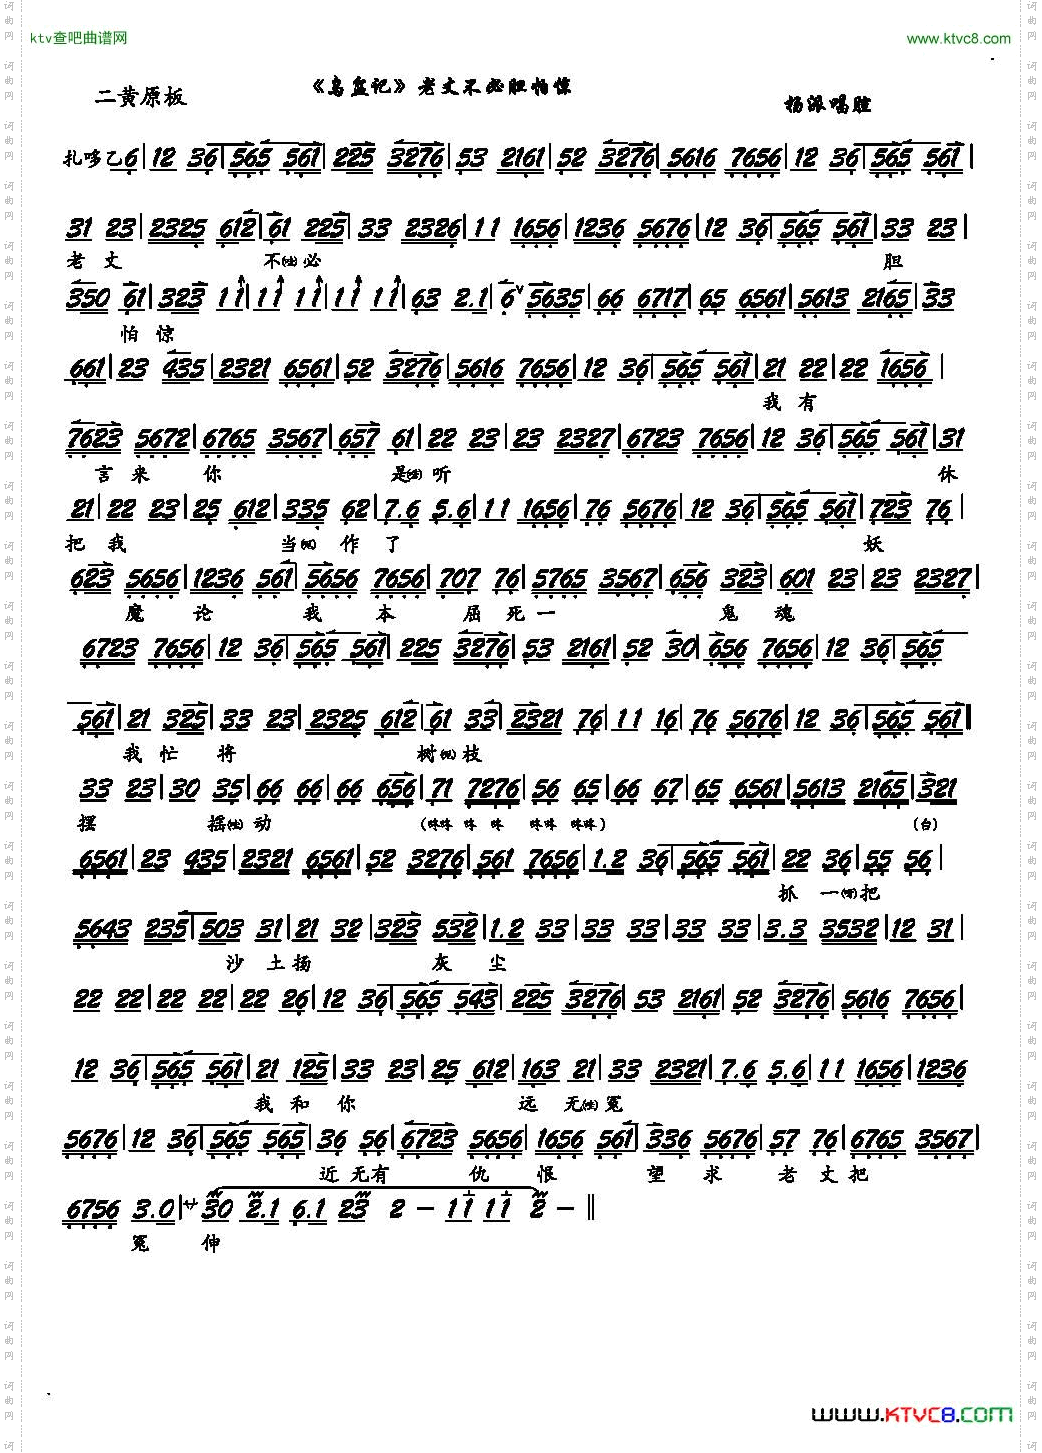 ktv查吧曲谱网
www.ktvc8.com
《乌盆记》老丈不必胆怕惊
二黄原板
杨派唱腔
扎哆乙6|12 36|565 561|225 3276|53 2161|52 3276|5616 7656|12 36|565 561|
31 23|2325 612|61 225|33 2326|11 1656|1236 5676|12 36|565 561|33 23|
老丈 不 必 胆
350 61|323 11|11 11|11 11|63 2.1|6 5635|66 6717|65 6561|5613 2165|33
怕惊
661|23 435|2321 6561|52 3276|5616 7656|12 36|565 561|21 22|22 1656|
我有
7623 5672|6765 3567|657 61|22 23|23 2327|6723 7656|12 36|565 561|31
言来你 是 听 休
21|22 23|25 612|335 62|7.6 5.6|11 1656|76 5676|12 36|565 561|723 76|
把我 当 作了 妖
623 5656|1236 561|5656 7656|707 76|5765 3567|656 323|601 23|23 2327|
魔论 我本屈死一 鬼魂
6723 7656|12 36|565 561|225 3276|53 2161|52 30|656 7656|12 36|565
561|21 325|33 23|2325 612|61 33|2321 76|11 16|76 5676|12 36|565 561|
我忙将 树 枝
33 23|30 35|66 66|66 656|71 7276|56 65|66 67|65 6561|5613 2165|321
摆 摇 动 (咚咚 咚 咚 咚咚 咚咚) (白)
6561|23 435|2321 6561|52 3276|561 7656|1.2 36|565 561|22 36|55 56|
抓一 把
5643 235|503 31|21 32|323 532|1.2 33|33 33|33 33|3.3 3532|12 31|
沙土扬 灰尘
22 22|22 22|22 26|12 36|565 543|225 3276|53 2161|52 3276|5616 7656|
12 36|565 561|21 125|33 23|25 612|163 21|33 2321|7.6 5.6|11 1656|1236
我和你 远无 冤
5676|12 36|565 565|36 56|6723 5656|1656 561|336 5676|57 76|6765 3567|
近无有 仇恨 望求 老丈把
6756 3.0|サ30 2.1 6.1 23 2 - 11 11 2 -‖
冤伸
www.KTVC8.COM